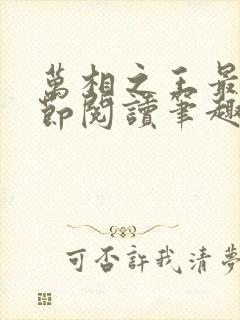 萬相之王最
節閱讀筆趣
可否許我清夢